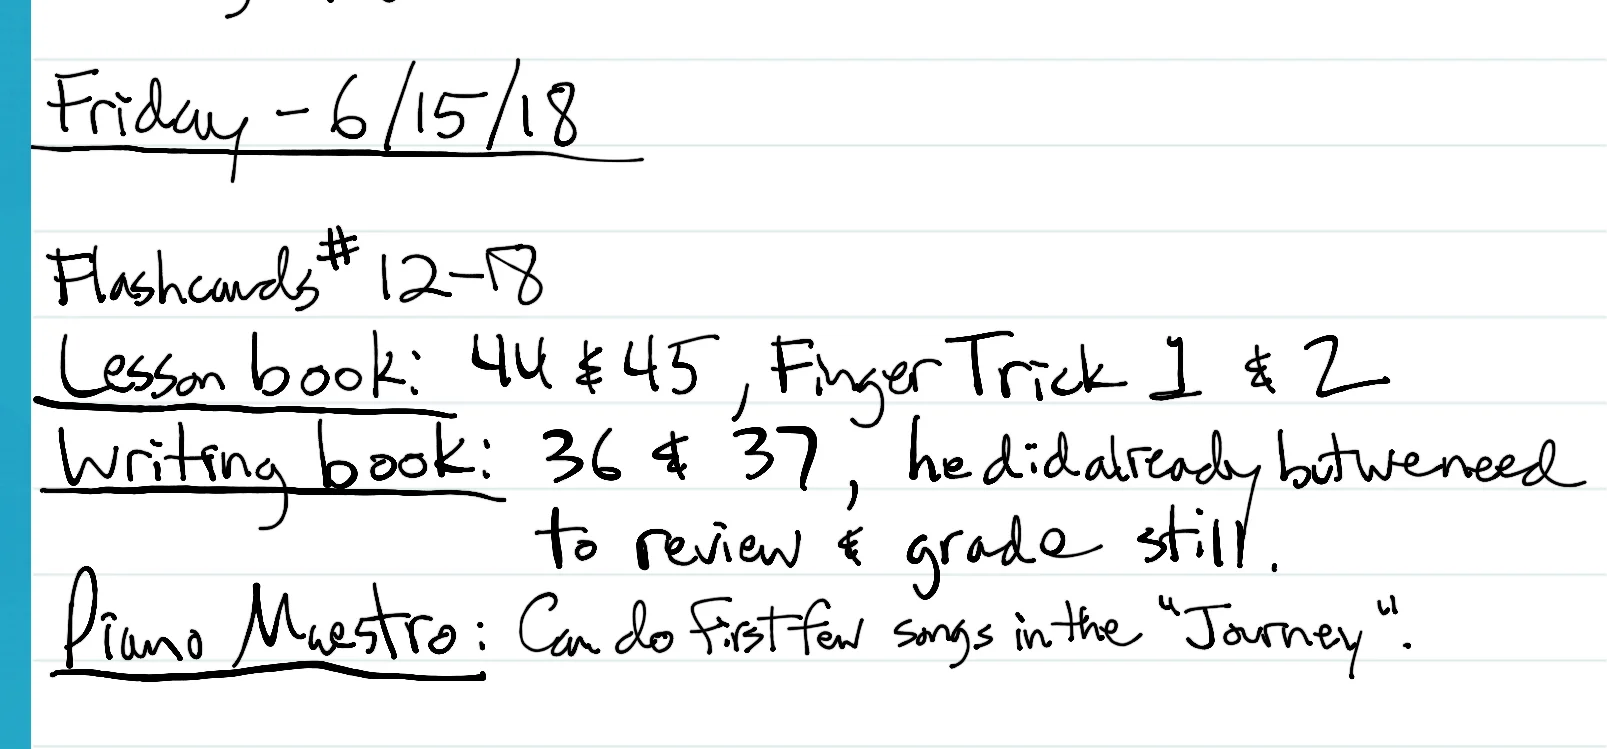 Friday - 6/15/18
Flashcards # 12-18
Lesson book: 44 & 45, Finger Trick 1 & 2
Writing book: 36 & 37, he did already but we need
to review & grade still.
Piano Maestro: Can do first few songs in the "Journey".